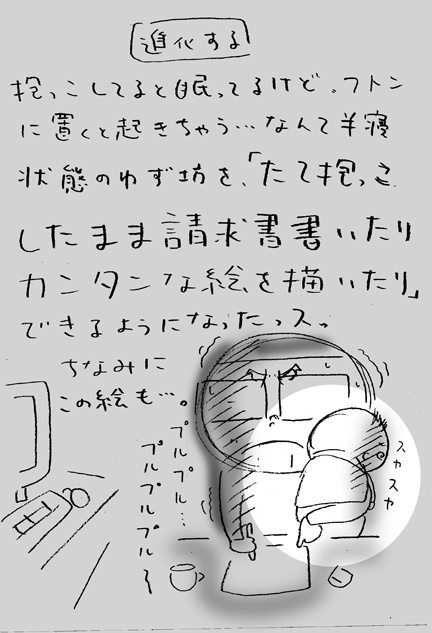 進化する
抱っこしてると眠ってるけど、フトン
に置くと起きちゃう…なんて半寝
状態のゆず坊を、「たて抱っこ
したまま請求書書いたり
カンタンな絵を描いたり」
できるようになったっス。
ちなみに
この絵も…。
プルプル…
プルプルプル〜
スヤスヤ